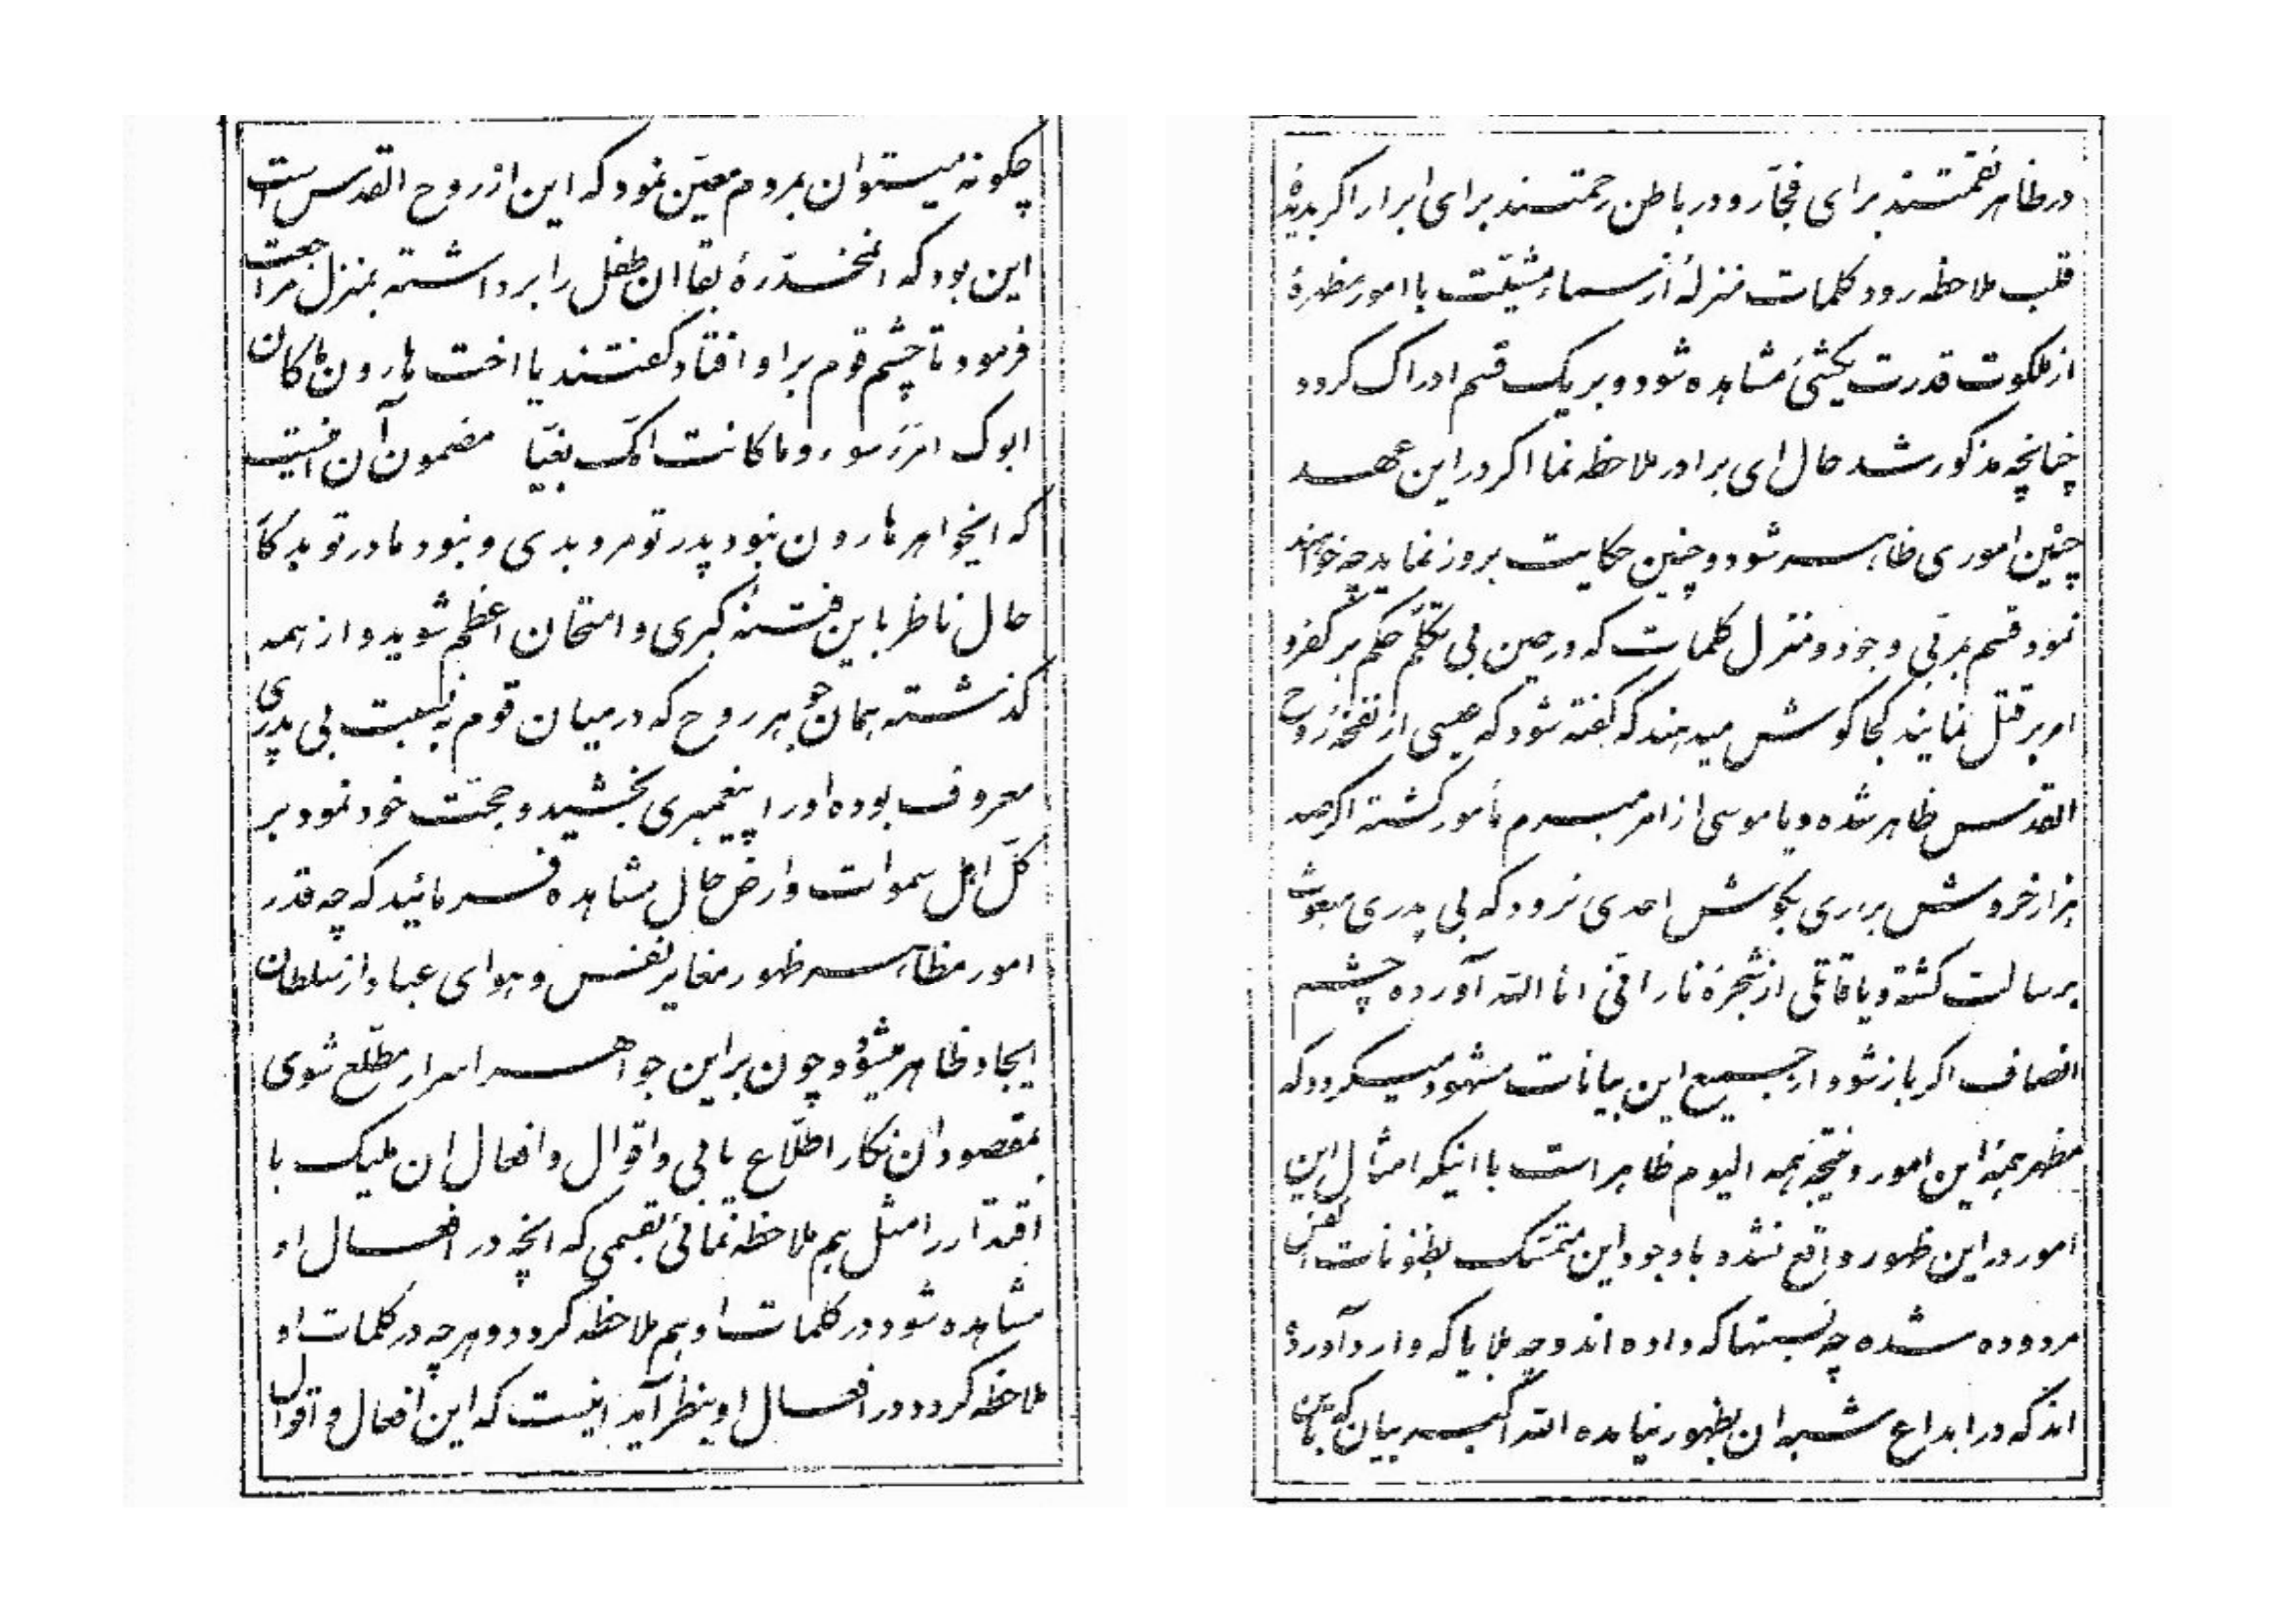 چکونه میتوان بمردم معیّن نمود که این از روح القدس است
این بود که انمخدّرهٔ بقا ان طفل را برداشته بمنزل مراجعت
فرمود تا چشم قوم بر او افتاد کفتند یا اخت هارون ما کان
ابوک امرَءَ سوء و ما کانت امّک بغیّا مضمون آن اینست
که ایخواهر هارون نبود پدر تو مرد بدی و نبود مادر تو بدکار
حال ناظر باین فتنهٔ کبری و امتحان اعظم شوید و از همه
کذشته همان جوهر روح که در میان قوم به نسبت بی پدری
معروف بوده او را پیغمبری بخشید و حجّت خود نمود بر
کلّ اهل سموات و ارض حال مشاهده فرمائید که چه قدر
امور مظاهر ظهور مغایر نفس و هوای عباد از سلطان
ایجاد ظاهر میشود و چون بر این جواهر اسرار مطّلع شوی
بمقصود ان نکار اطّلاع یابی و اقوال و افعال ان ملیک با
اقتدار را مثل هم ملاحظه نمائی بقسمی که انچه در افعال او
مشاهده شود در کلمات او هم ملاحظه کردد و هر چه در کلمات او
ملاحظه کردد در افعال او بنظر آید اینست که این افعال و اقوال
در ظاهر نقمتند برای فجّار و در باطن رحمتند برای ابرار اکر بدیدهٔ
قلب ملاحظه رود کلمات منزلهٔ از سماء مشیّت با امور مظهرهٔ
از ملکوت قدرت یکشئ مشاهده شود و بر یک قسم ادراک کردد
چنانچه مذکور شد حال ای برادر ملاحظه نما اکر در این عهد
چنین اموری ظاهر شود و چنین حکایت بروز نماید چه خواهند
نمود قسم بمربّی وجود و منزل کلمات که در حین بی تکلّم حکم بر کفر و
امر بر قتل نمایند کجا کوش میدهند که کفته شود که عیسی از نفخهٔ روح
القدس ظاهر شده و یا موسی از امر مبرم مأمور کشته اکر صد
هزار خروش براری بکوش احدی نرود که بی پدری مبعوث
برسالت کشته و یا قاتلی از شجرهٔ نار انّی انا اللّه آورده چشم
انصاف اکر باز شود از جمیع این بیانات مشهود میکردد که
مظهر همهٔ این امور و نتیجهٔ همه الیوم ظاهر است با اینکه امثال این
امور در این ظهور واقع نشده با وجود این متمسّک بظنونات انفس
مردوده شده چه نسبتها که داده اند و چه بلایا که وارد آورده
اند که در ابداع شبه ان بظهور نیامده اللّه اکبر بیان که باین